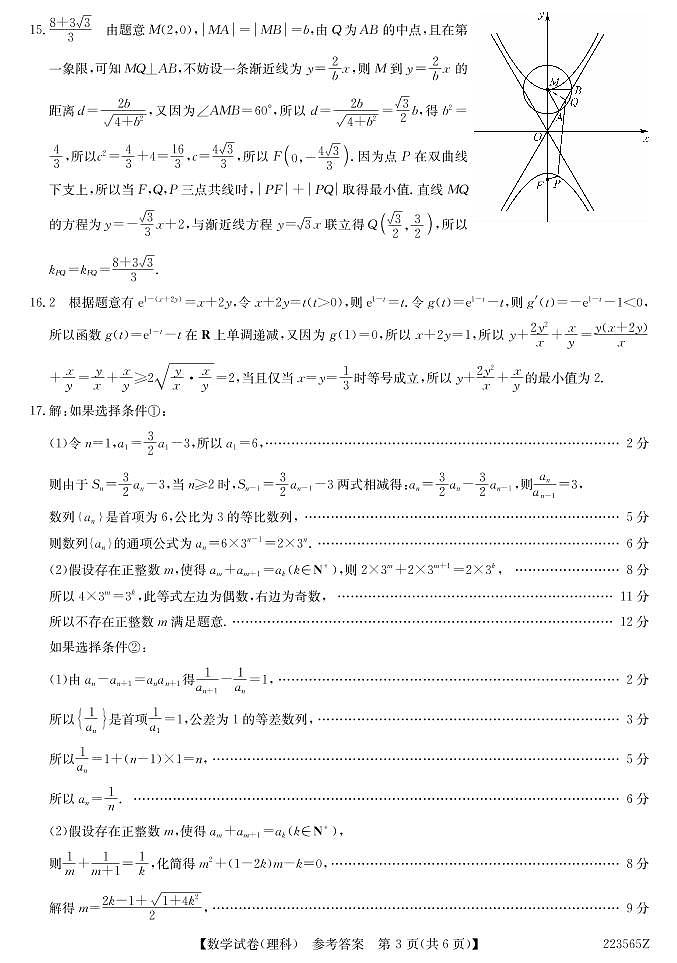 15. $\frac{8+3\sqrt{3}}{3}$ 由题意 M(2,0),|MA|=|MB|=b,由 Q 为 AB 的中点,且在第
一象限,可知 MQ⊥AB,不妨设一条渐近线为 $y=\frac{2}{b}x$,则 M 到 $y=\frac{2}{b}x$ 的
距离 $d=\frac{2b}{\sqrt{4+b^2}}$,又因为∠AMB=60°,所以 $d=\frac{2b}{\sqrt{4+b^2}}=\frac{\sqrt{3}}{2}b$,得 $b^2=$
$\frac{4}{3}$,所以$c^2=\frac{4}{3}+4=\frac{16}{3}$,$c=\frac{4\sqrt{3}}{3}$,所以 $F\left(0,-\frac{4\sqrt{3}}{3}\right)$.因为点 P 在双曲线
下支上,所以当 F,Q,P 三点共线时,|PF|+|PQ|取得最小值.直线 MQ
的方程为 $y=-\frac{\sqrt{3}}{3}x+2$,与渐近线方程 $y=\sqrt{3}x$ 联立得 $Q\left(\frac{\sqrt{3}}{2},\frac{3}{2}\right)$,所以
$k_{PQ}=k_{FQ}=\frac{8+3\sqrt{3}}{3}$.
y
M
B
Q
A
O
x
F
P
16. 2 根据题意有 $e^{1-(x+2y)}=x+2y$,令 x+2y=t(t>0),则 $e^{1-t}=t$.令 $g(t)=e^{1-t}-t$,则 $g'(t)=-e^{1-t}-1<0$,
所以函数 $g(t)=e^{1-t}-t$ 在 R 上单调递减,又因为 g(1)=0,所以 x+2y=1,所以 $y+\frac{2y^2}{x}+\frac{x}{y}=\frac{y(x+2y)}{x}$
$+\frac{x}{y}=\frac{y}{x}+\frac{x}{y}≥2\sqrt{\frac{y}{x}·\frac{x}{y}}=2$,当且仅当 $x=y=\frac{1}{3}$时等号成立,所以 $y+\frac{2y^2}{x}+\frac{x}{y}$的最小值为 2.
17. 解:如果选择条件①:
(1)令 n=1,$a_1=\frac{3}{2}a_1-3$,所以 $a_1=6$,…………………………………………………… 2 分
则由于 $S_n=\frac{3}{2}a_n-3$,当 n≥2 时,$S_{n-1}=\frac{3}{2}a_{n-1}-3$ 两式相减得:$a_n=\frac{3}{2}a_n-\frac{3}{2}a_{n-1}$,则$\frac{a_n}{a_{n-1}}=3$,
数列{$a_n$}是首项为 6,公比为 3 的等比数列,…………………………………………………… 5 分
则数列{$a_n$}的通项公式为 $a_n=6×3^{n-1}=2×3^n$.…………………………………………………… 6 分
(2)假设存在正整数 m,使得 $a_m+a_{m+1}=a_k(k∈N^*)$,则 $2×3^m+2×3^{m+1}=2×3^k$,………………… 8 分
所以 $4×3^m=3^k$,此等式左边为偶数,右边为奇数,…………………………………………… 11 分
所以不存在正整数 m 满足题意.…………………………………………………… 12 分
如果选择条件②:
(1)由 $a_n-a_{n+1}=a_na_{n+1}$得$\frac{1}{a_{n+1}}-\frac{1}{a_n}=1$,…………………………………………………… 2 分
所以$\left\{\frac{1}{a_n}\right\}$是首项$\frac{1}{a_1}=1$,公差为 1 的等差数列,…………………………………………………… 3 分
所以$\frac{1}{a_n}=1+(n-1)×1=n$,…………………………………………………… 5 分
所以 $a_n=\frac{1}{n}$.…………………………………………………… 6 分
(2)假设存在正整数 m,使得 $a_m+a_{m+1}=a_k(k∈N^*)$,
则$\frac{1}{m}+\frac{1}{m+1}=\frac{1}{k}$,化简得 $m^2+(1-2k)m-k=0$,…………………………………………………… 8 分
解得 $m=\frac{2k-1+\sqrt{1+4k^2}}{2}$,…………………………………………………… 9 分
【数学试卷(理科) 参考答案 第 3 页(共 6 页)】 223565Z